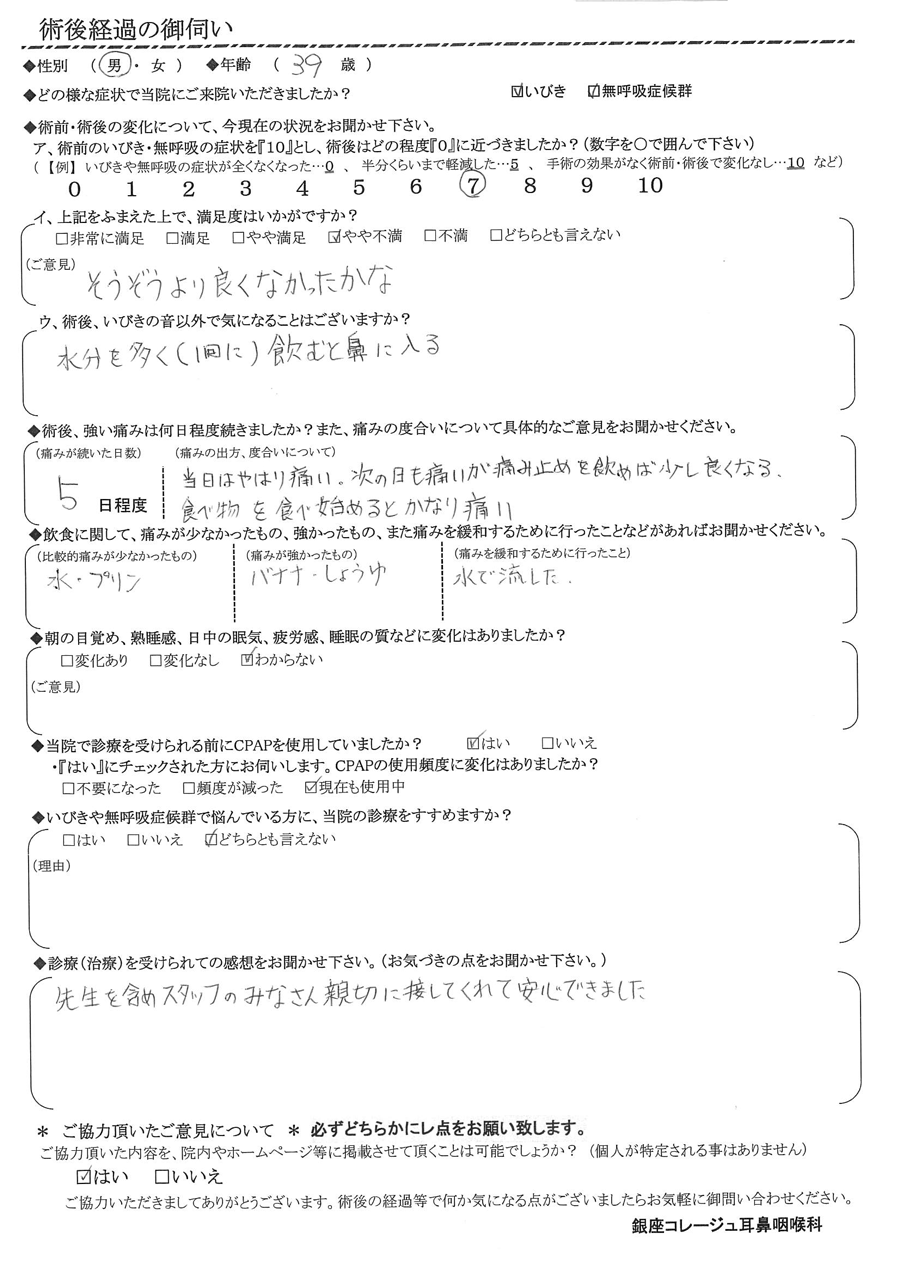 術後経過の御伺い
◆性別 （ 男 ・ 女 ） ◆年齢 （ 39 歳 ）
◆どの様な症状で当院にご来院いただきましたか？ ☑いびき ☑無呼吸症候群
◆術前・術後の変化について、今現在の状況をお聞かせ下さい。
ア、術前のいびき・無呼吸の症状を『10』とし、術後はどの程度『0』に近づきましたか？（数字を〇で囲んで下さい）
（【例】 いびきや無呼吸の症状が全くなくなった…0 、 半分くらいまで軽減した…5 、 手術の効果がなく術前・術後で変化なし…10 など）
0 1 2 3 4 5 6 7 8 9 10
イ、上記をふまえた上で、満足度はいかがですか？
□非常に満足 □満足 □やや満足 ☑やや不満 □不満 □どちらとも言えない
（ご意見）
そうぞうより良くなかったかな
ウ、術後、いびきの音以外で気になることはございますか？
水分を多く（1回に）飲むと鼻に入る
◆術後、強い痛みは何日程度続きましたか？また、痛みの度合いについて具体的なご意見をお聞かせください。
（痛みが続いた日数） （痛みの出方、度合いについて）
当日はやはり痛い。次の日も痛いが痛み止めを飲めば少し良くなる、
5 日程度 食べ物を食べ始めるとかなり痛い
◆飲食に関して、痛みが少なかったもの、強かったもの、また痛みを緩和するために行ったことなどがあればお聞かせください。
（比較的痛みが少なかったもの） （痛みが強かったもの） （痛みを緩和するために行ったこと）
水・プリン バナナ・しょうゆ 水で流した.
◆朝の目覚め、熟睡感、日中の眠気、疲労感、睡眠の質などに変化はありましたか？
□変化あり □変化なし ☑わからない
（ご意見）
◆当院で診療を受けられる前にCPAPを使用していましたか？ ☑はい □いいえ
・『はい』にチェックされた方にお伺いします。CPAPの使用頻度に変化はありましたか？
□不要になった □頻度が減った ☑現在も使用中
◆いびきや無呼吸症候群で悩んでいる方に、当院の診療をすすめますか？
□はい □いいえ ☑どちらとも言えない
（理由）
◆診療（治療）を受けられての感想をお聞かせ下さい。（お気づきの点をお聞かせ下さい。）
先生を含めスタッフのみなさん親切に接してくれて安心できました
＊ ご協力頂いたご意見について ＊ 必ずどちらかにレ点をお願い致します。
ご協力頂いた内容を、院内やホームページ等に掲載させて頂くことは可能でしょうか？ （個人が特定される事はありません）
☑はい □いいえ
ご協力いただきましてありがとうございます。術後の経過等で何か気になる点がございましたらお気軽に御問い合わせください。
銀座コレージュ耳鼻咽喉科